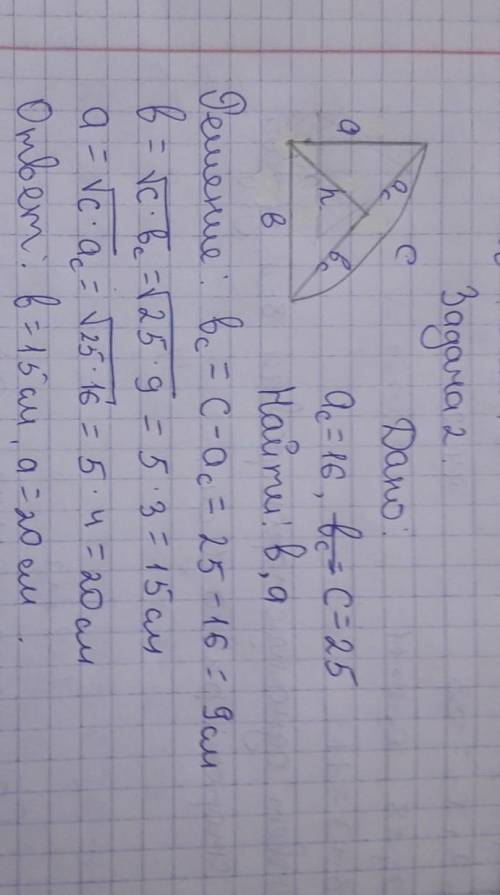 Задача 2.
Дано:
a_c = 16, b_c = c = 25
Найти: в, a
a
h
в
a_c
b_c
c
Решение: b_c = c - a_c = 25 - 16 = 9 см
в = √c·b_c = √25·9 = 5·3 = 15 см
a = √c·a_c = √25·16 = 5·4 = 20 см
Ответ: в = 15 см, a = 20 см.